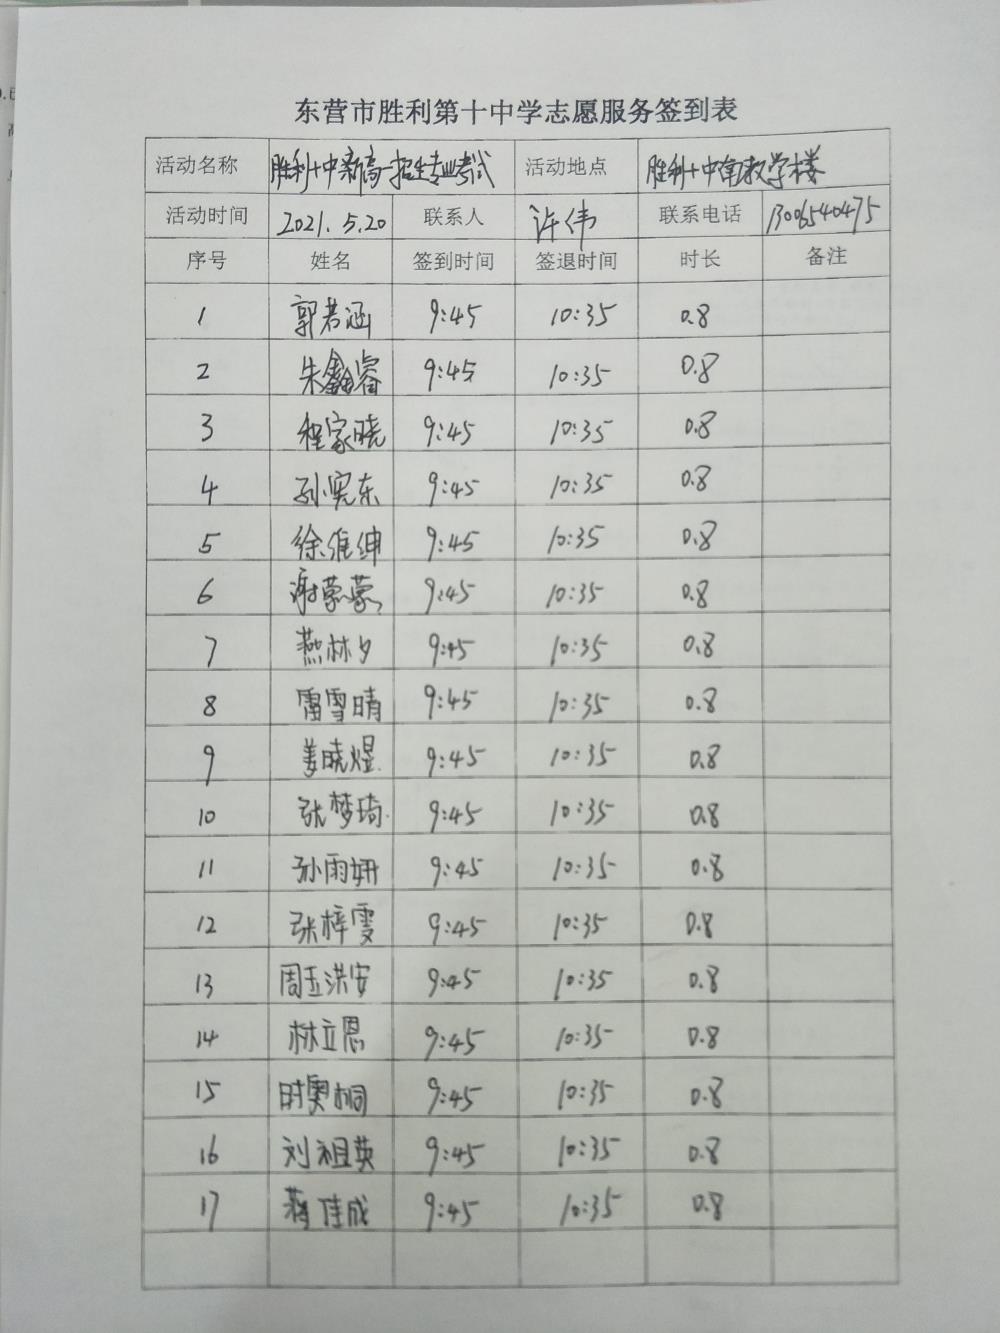 东营市胜利第十中学志愿服务签到表
活动名称 胜利十中新高一招生专业考试 活动地点 胜利十中南教学楼
活动时间 2021.5.20 联系人 许伟 联系电话 13006540475
序号 姓名 签到时间 签退时间 时长 备注
1 郭若涵 9:45 10:35 0.8
2 朱鑫睿 9:45 10:35 0.8
3 程家晓 9:45 10:35 0.8
4 孙宪东 9:45 10:35 0.8
5 徐维绅 9:45 10:35 0.8
6 谢蒙蒙 9:45 10:35 0.8
7 燕林夕 9:45 10:35 0.8
8 雷雪晴 9:45 10:35 0.8
9 姜晓煜 9:45 10:35 0.8
10 张梦琦 9:45 10:35 0.8
11 孙雨妍 9:45 10:35 0.8
12 张梓雯 9:45 10:35 0.8
13 周玉洪安 9:45 10:35 0.8
14 林立恩 9:45 10:35 0.8
15 时奥桐 9:45 10:35 0.8
16 刘祖英 9:45 10:35 0.8
17 蒋佳成 9:45 10:35 0.8